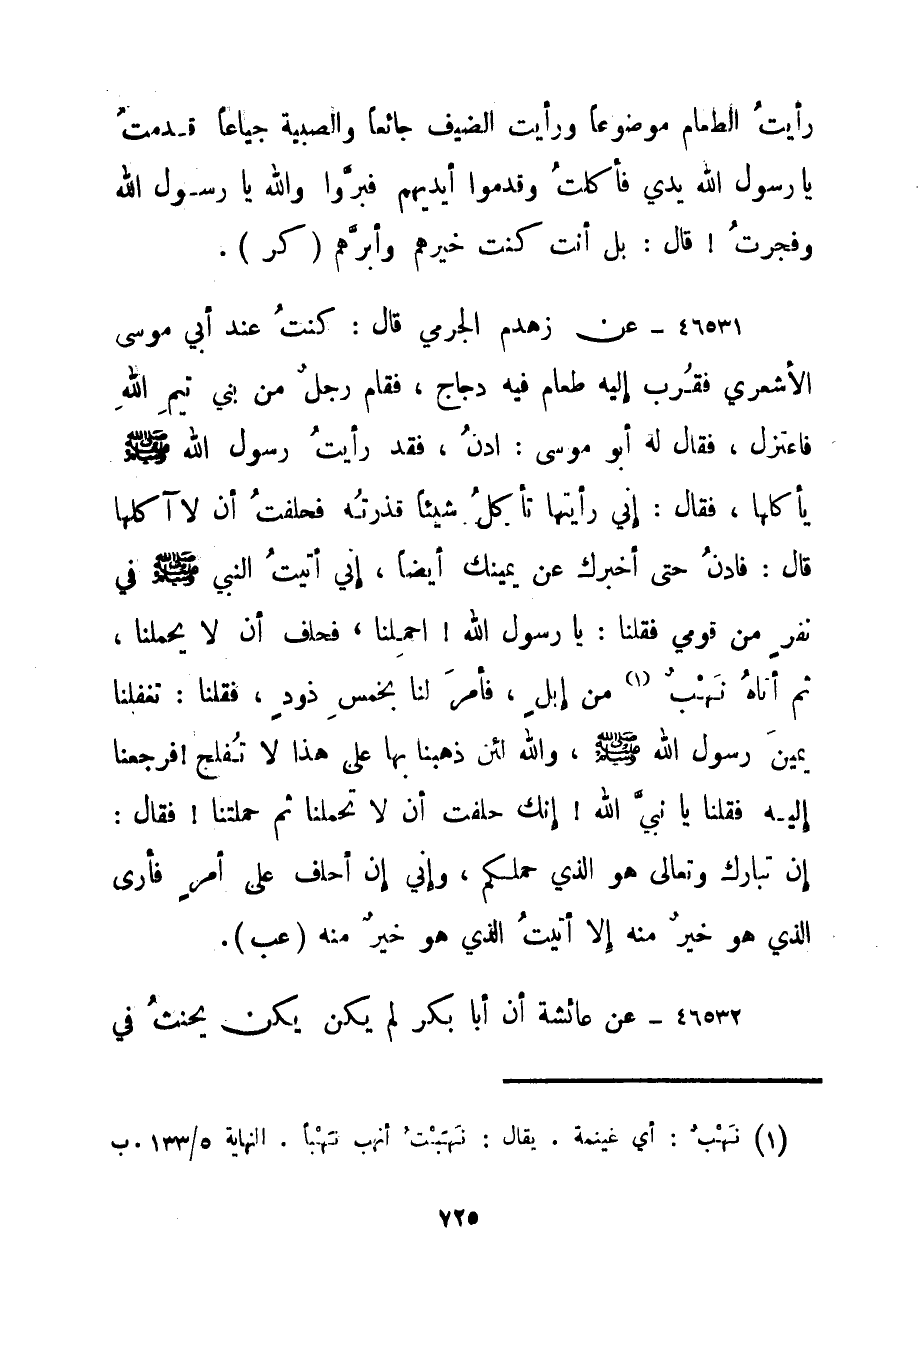 رأيتُ الطعام موضوعاً ورأيت الضيف جائعاً والصبية جياعاً قـدمتُ
يا رسول الله يدي فأكلتُ وقدموا أيديهم فبرَّوا والله يا رسـول الله
وفجرتُ ! قال : بل أنت كنت خيرهم وأبرَّهم ( كر ) .
٤٦٥٣١ ـ عن زهدم الجرمي قال : كنتُ عند أبي موسى
الأشعري فقُرب إليه طعام فيه دجاج ، فقام رجلٌ من بني تيمِ اللهِ
فاعتزل ، فقال له أبو موسى : ادنُ ، فقد رأيتُ رسول الله ﷺ
يأكلها ، فقال : إني رأيتها تأكلُ شيئاً قذرتُه فحلفتُ أن لا آكلها
قال : فادنُ حتى أخبرك عن يمينك أيضاً ، إني أتيتُ النبي ﷺ في
نفرٍ من قومي فقلنا : يا رسول الله ! احمِلنا ، فحلف أن لا يحملنا ،
ثم أتاهُ نَهْبٌ (١) من إبلٍ ، فأمرَ لنا بخمسِ ذودٍ ، فقلنا : تغفلنا
يمينَ رسول الله ﷺ ، والله لئن ذهبنا بها على هذا لا تُفلح افرجعنا
إليـه فقلنا يا نبيَّ الله ! إنك حلفت أن لا تحملنا ثم حملتنا ! فقال :
إن تبارك وتعالى هو الذي حملكم ، وإني إن أحلف على أمرٍ فأرى
الذي هو خيرٌ منه إلا أتيتُ الذي هو خيرٌ منه ( عب ) .
٤٦٥٣٢ ـ عن عائشة أن أبا بكر لم يكن يكن يحنثُ في
(١) نَهْبٌ : أي غنيمة . يقال : نَهَبْتُ أنهب نَهْباً . النهاية ١٣٣/٥ . ب
٧٢٥